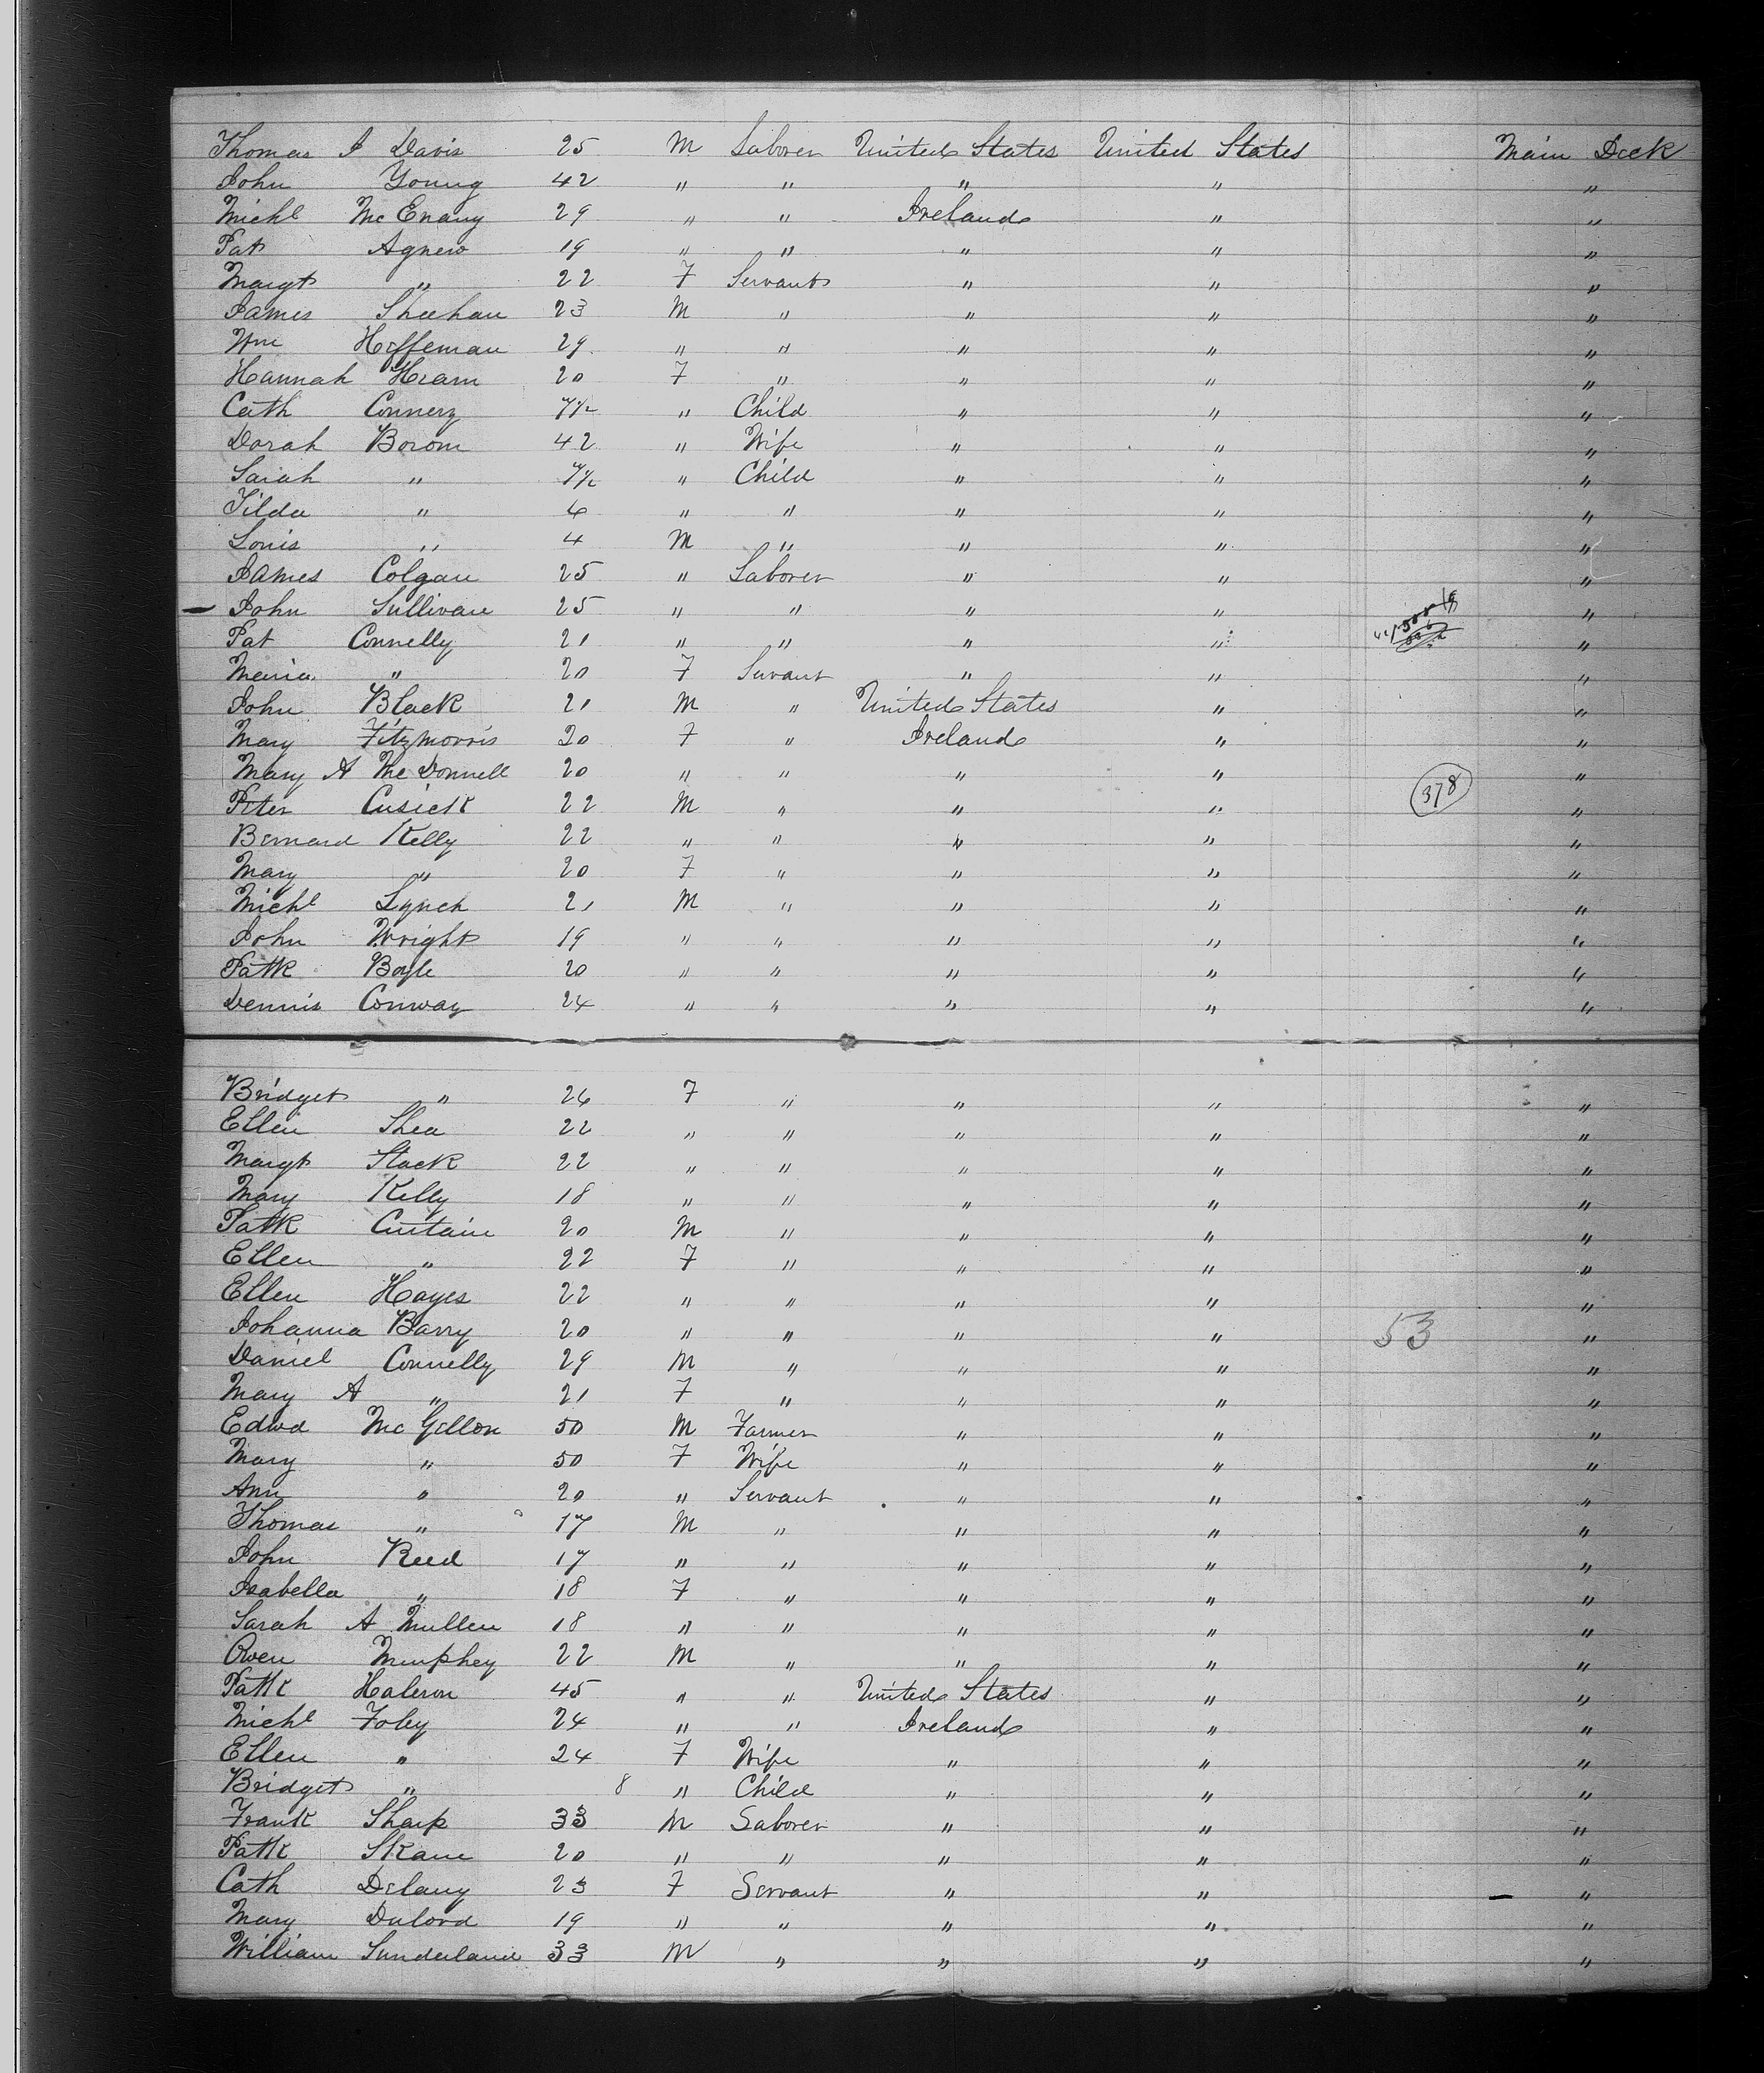 Thomas J Davis 25 M Laborer United States United States Main Deck
John Young 42 " " " " "
Michl McEnany 29 " " Ireland " "
Pat Agnew 19 " " " " "
Margt " 22 F Servant " " "
James Sheehan 23 M " " " "
Wm Heffernan 29 " " " " "
Hannah Hearn 20 F " " " "
Cath Connery 7½ " Child " " "
Dorah Borom 42 " Wife " " "
Sarah " 7½ " Child " " "
Tilda " 6 " " " " "
Louis " 4 M " " " "
James Colgan 25 " Laborer " " "
John Sullivan 25 " " " " "
Pat Connelly 21 " " " " "
Maria " 20 F Servant " " "
John Black 21 M " United States " "
Mary Fitzmorris 20 F " Ireland " "
Mary A McDonnell 20 " " " " "
Peter Cusick 22 M " " " 378 "
Bernard Kelly 22 " " " " "
Mary " 20 F " " " "
Michl Lynch 21 M " " " "
John Wright 19 " " " " "
Patk Boyle 20 " " " " "
Dennis Conway 24 " " " " "
Bridget " 26 F " " " "
Ellen Shea 22 " " " " "
Margt Stack 22 " " " " "
Mary Kelly 18 " " " " "
Patk Curtain 20 M " " " "
Ellen " 22 F " " " "
Ellen Hayes 22 " " " " "
Johanna Barry 20 " " " " 53 "
Daniel Connelly 29 M " " " "
Mary A " 21 F " " " "
Edwd McGellon 50 M Farmer " " "
Mary " 50 F Wife " " "
Ann " 20 " Servant " " "
Thomas " 17 M " " " "
John Reed 17 " " " " "
Isabella " 18 F " " " "
Sarah A Mullen 18 " " " " "
Owen Murphey 22 M " " " "
Patk Haleron 45 " " United States " "
Michl Foley 24 " " Ireland " "
Ellen " 24 F Wife " " "
Bridget " 8 " Child " " "
Frank Sharp 33 M Laborer " " "
Patk Skane 20 " " " " "
Cath Delany 23 F Servant " " "
Mary Dulord 19 " " " " "
William Sunderland 33 M " " " "